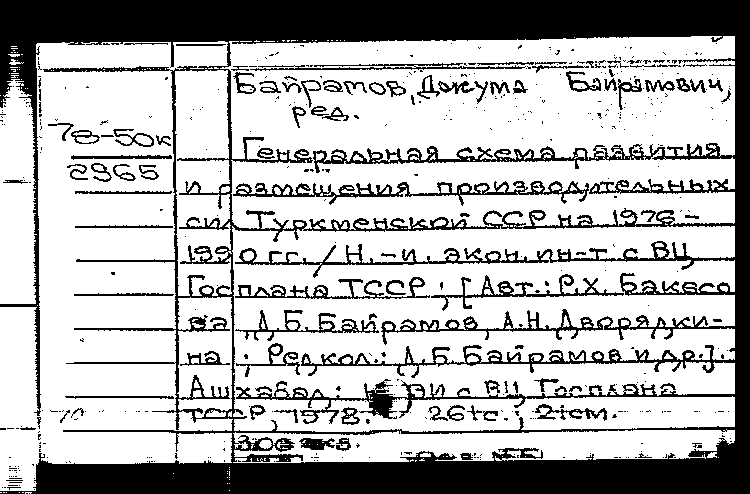 Байрамов, Джума Байрамович,
ред.
78-50к
2965
Генеральная схема развития
и размещения производительных
сил Туркменской ССР на 1976-
1990 гг. / Н.-и. экон. ин-т с ВЦ
Госплана ТССР ; [Авт.: Р.Х. Бакасо
ва, Д.Б. Байрамов, А.Н. Дворядки-
на ; Редкол.: Д.Б. Байрамов и др.].-
Ашхабад: с ВЦ Госплана
ТССР, 1978. 261с.; 21см.
300 экз.